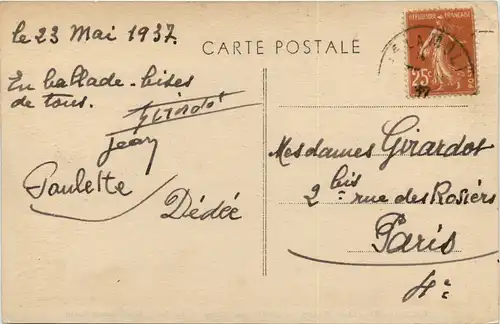 le 23 Mai 1937.
CARTE POSTALE
REPUBLIQUE FRANÇAISE
25c
POSTES
En ballade - bises
de tous.
Girardot
Jean
Paulette
Dédée
Mesdames Girardot
2 bis rue des Rosiers
Paris
4e